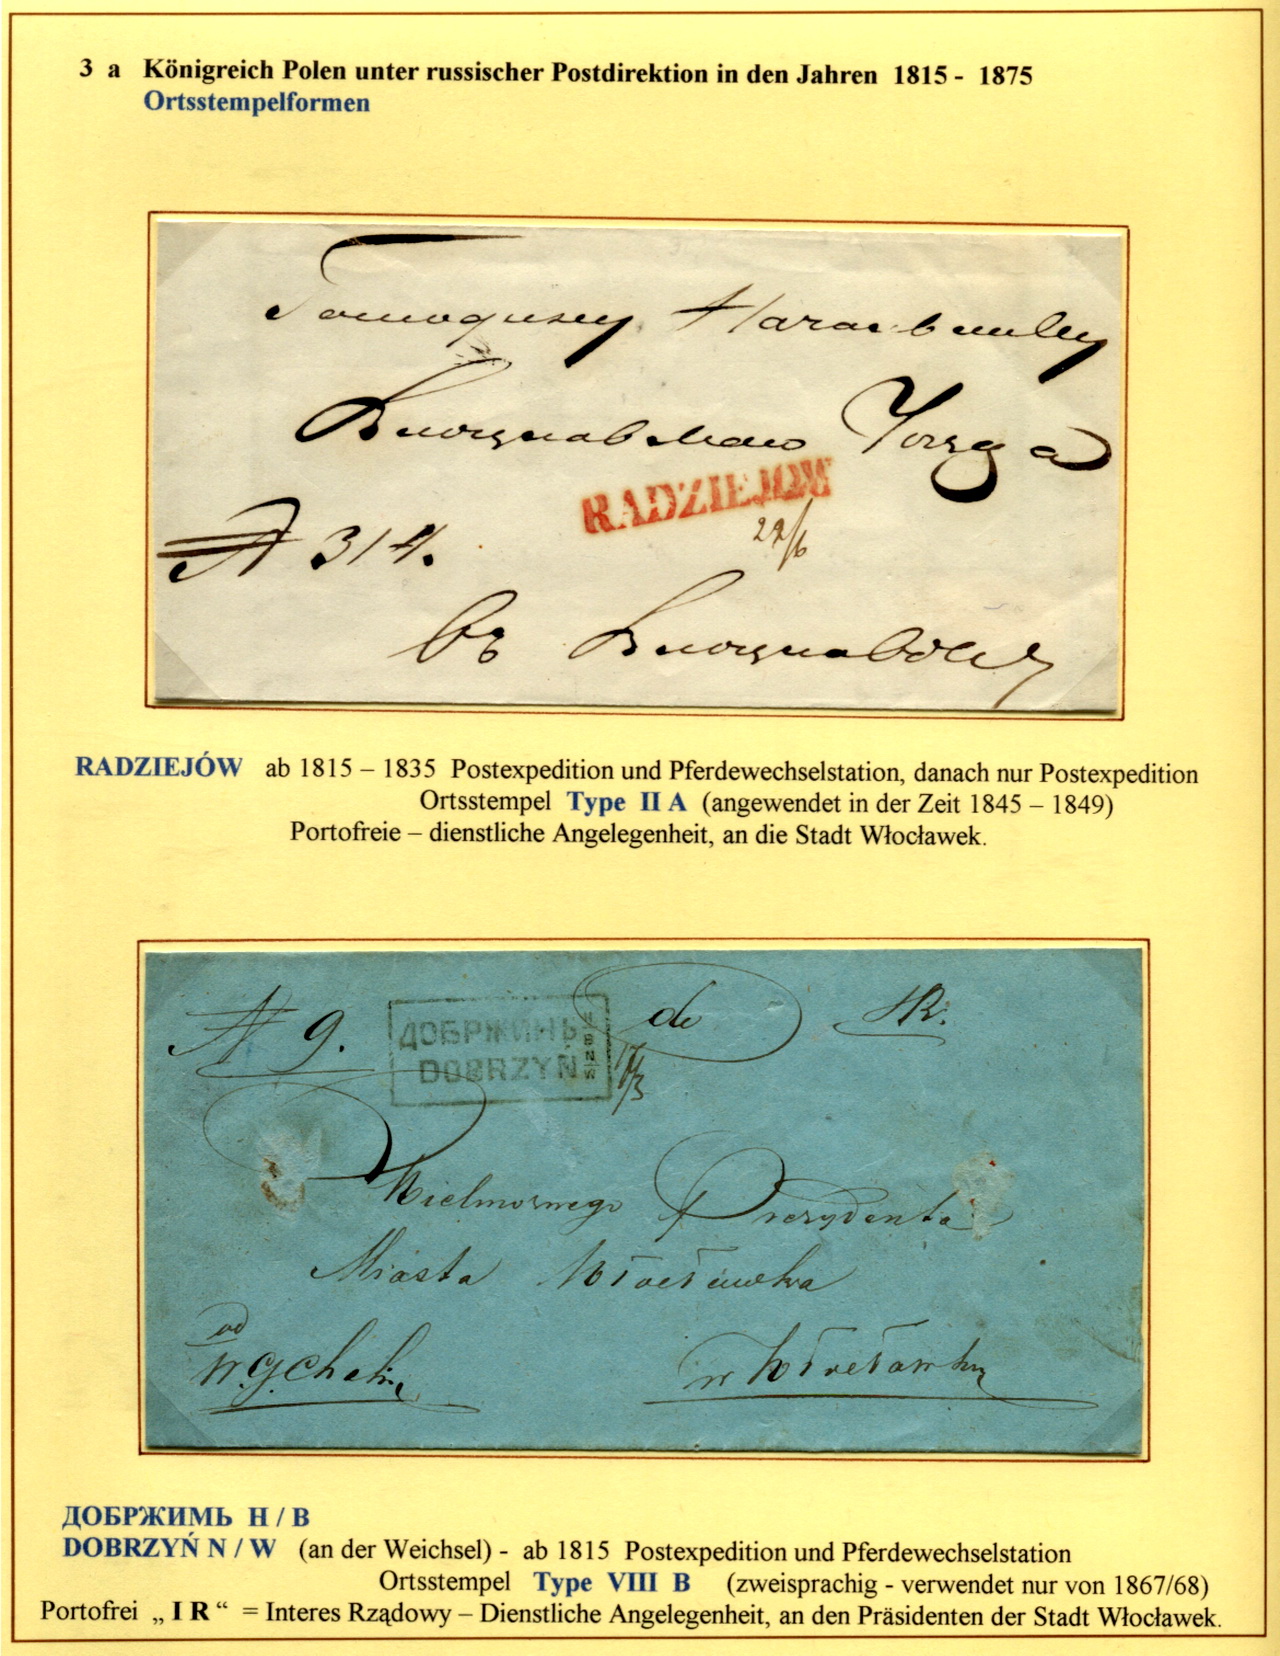 3 a Königreich Polen unter russischer Postdirektion in den Jahren 1815 - 1875
Ortsstempelformen
Господину Начальнику
Влоцлавскаго Уезда
RADZIEJOW
22/6
№ 314.
въ Влоцлавске
RADZIEJÓW ab 1815 – 1835 Postexpedition und Pferdewechselstation, danach nur Postexpedition
Ortsstempel Type II A (angewendet in der Zeit 1845 – 1849)
Portofreie – dienstliche Angelegenheit, an die Stadt Włocławek.
N 9. do IR.
ДОБРЖИНЬ Н/В
DOBRZYŃ N/W
17/3
Wielmożnego Prezydenta
Miasta Włocławka
od
w Włocławku
ДОБРЖИМЬ Н / В
DOBRZYŃ N / W (an der Weichsel) - ab 1815 Postexpedition und Pferdewechselstation
Ortsstempel Type VIII B (zweisprachig - verwendet nur von 1867/68)
Portofrei „ I R “ = Interes Rządowy – Dienstliche Angelegenheit, an den Präsidenten der Stadt Włocławek.